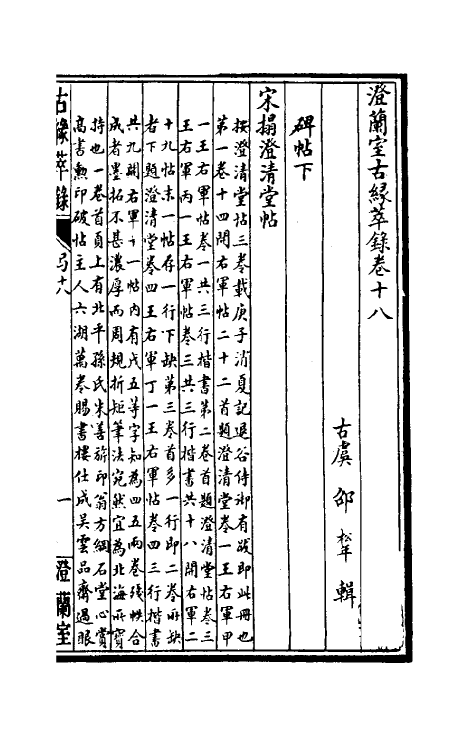 澄蘭室古緣萃錄卷十八
古虞 邵 松年 輯
碑帖下
宋搨澄清堂帖
按澄清堂帖三卷載庚子消夏記退谷侍御有跋即此冊也
第一卷十四開右軍帖二十二首題澄清堂卷一王右軍甲
一王右軍帖卷一共三行楷書第二卷首題澄清堂帖卷三
王右軍丙一王右軍帖卷三共三行楷書共十八開右軍二
十九帖末一帖存一行下缺第三卷首多一行即二卷所缺
者下題澄清堂卷四王右軍丁一王右軍帖卷四三行楷書
共九開右軍十一帖內有戊五等字知為四五兩卷殘帙合
成者墨拓不甚濃厚而周規折矩筆法宛然宜為北海所寶
持也一卷首頁上有北平孫氏朱善旂印翁方綱石堂心賞
高書勳印破帖主人六湖萬卷賜書樓仕成吳雲品齋過眼
古緣萃錄
卷十八
一
澄蘭室